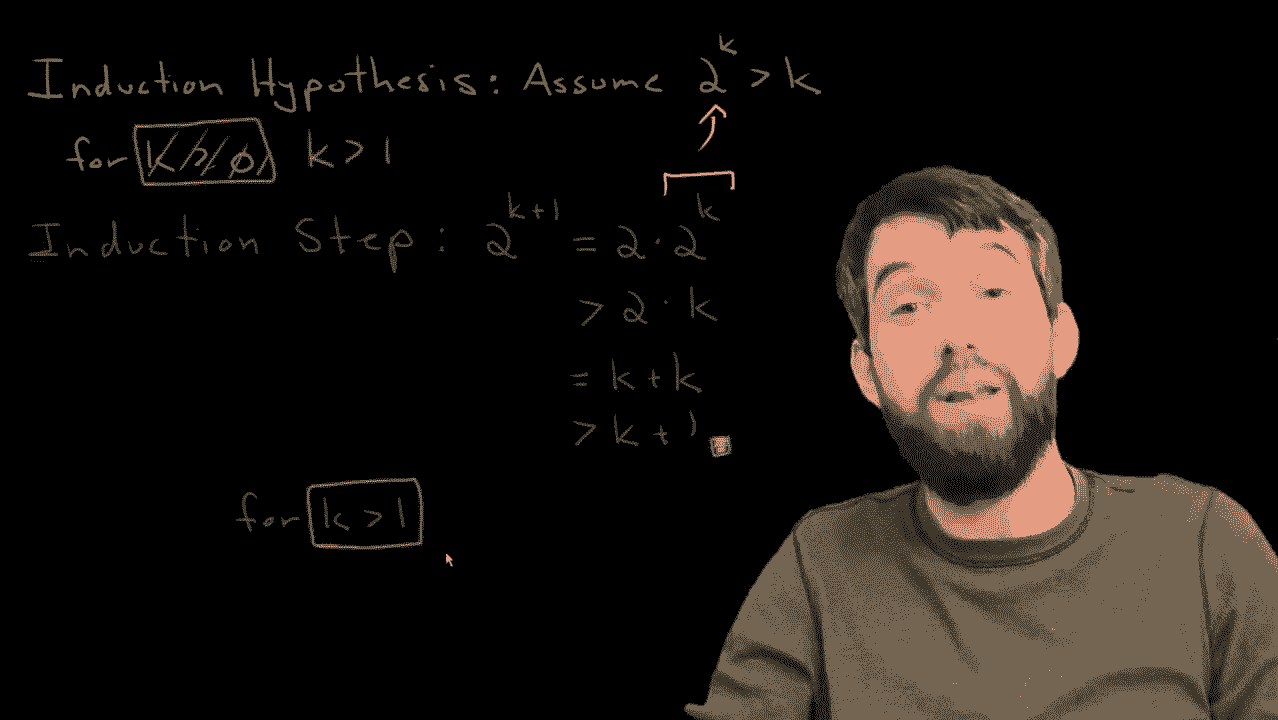 Induction Hypothesis: Assume 2^k > k
for k > 1
Induction Step: 2^(k+1) = 2·2^k
> 2·k
= k+k
> k+1
for k > 1